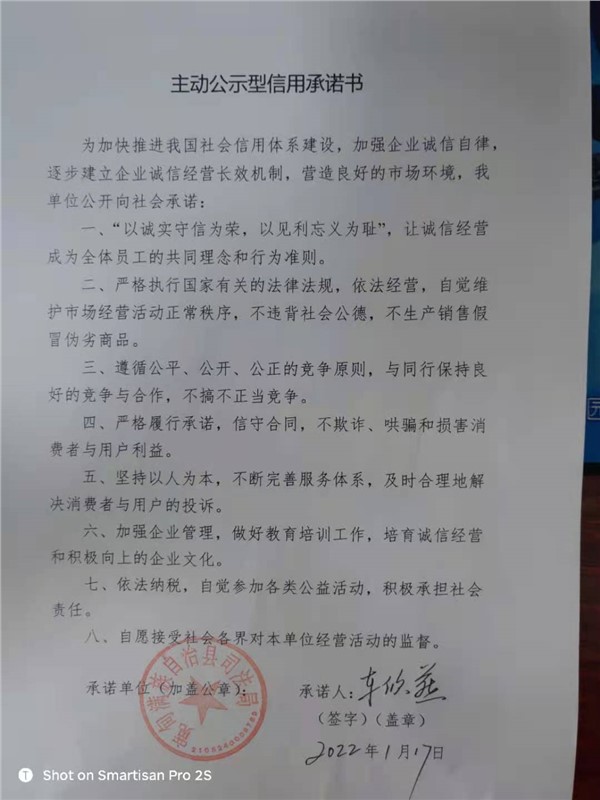 主动公示型信用承诺书
为加快推进我国社会信用体系建设，加强企业诚信自律，
逐步建立企业诚信经营长效机制，营造良好的市场环境，我
单位公开向社会承诺：
一、“以诚实守信为荣，以见利忘义为耻”，让诚信经营
成为全体员工的共同理念和行为准则。
二、严格执行国家有关的法律法规，依法经营，自觉维
护市场经营活动正常秩序，不违背社会公德，不生产销售假
冒伪劣商品。
三、遵循公平、公开、公正的竞争原则，与同行保持良
好的竞争与合作，不搞不正当竞争。
四、严格履行承诺，信守合同，不欺诈、哄骗和损害消
费者与用户利益。
五、坚持以人为本，不断完善服务体系，及时合理地解
决消费者与用户的投诉。
六、加强企业管理，做好教育培训工作，培育诚信经营
和积极向上的企业文化。
七、依法纳税，自觉参加各类公益活动，积极承担社会
责任。
八、自愿接受社会各界对本单位经营活动的监督。
承诺单位（加盖公章）：
宽甸满族自治县司法局
承诺人：车欣燕
（签字）（盖章）
2022年1月17日
Shot on Smartisan Pro 2S